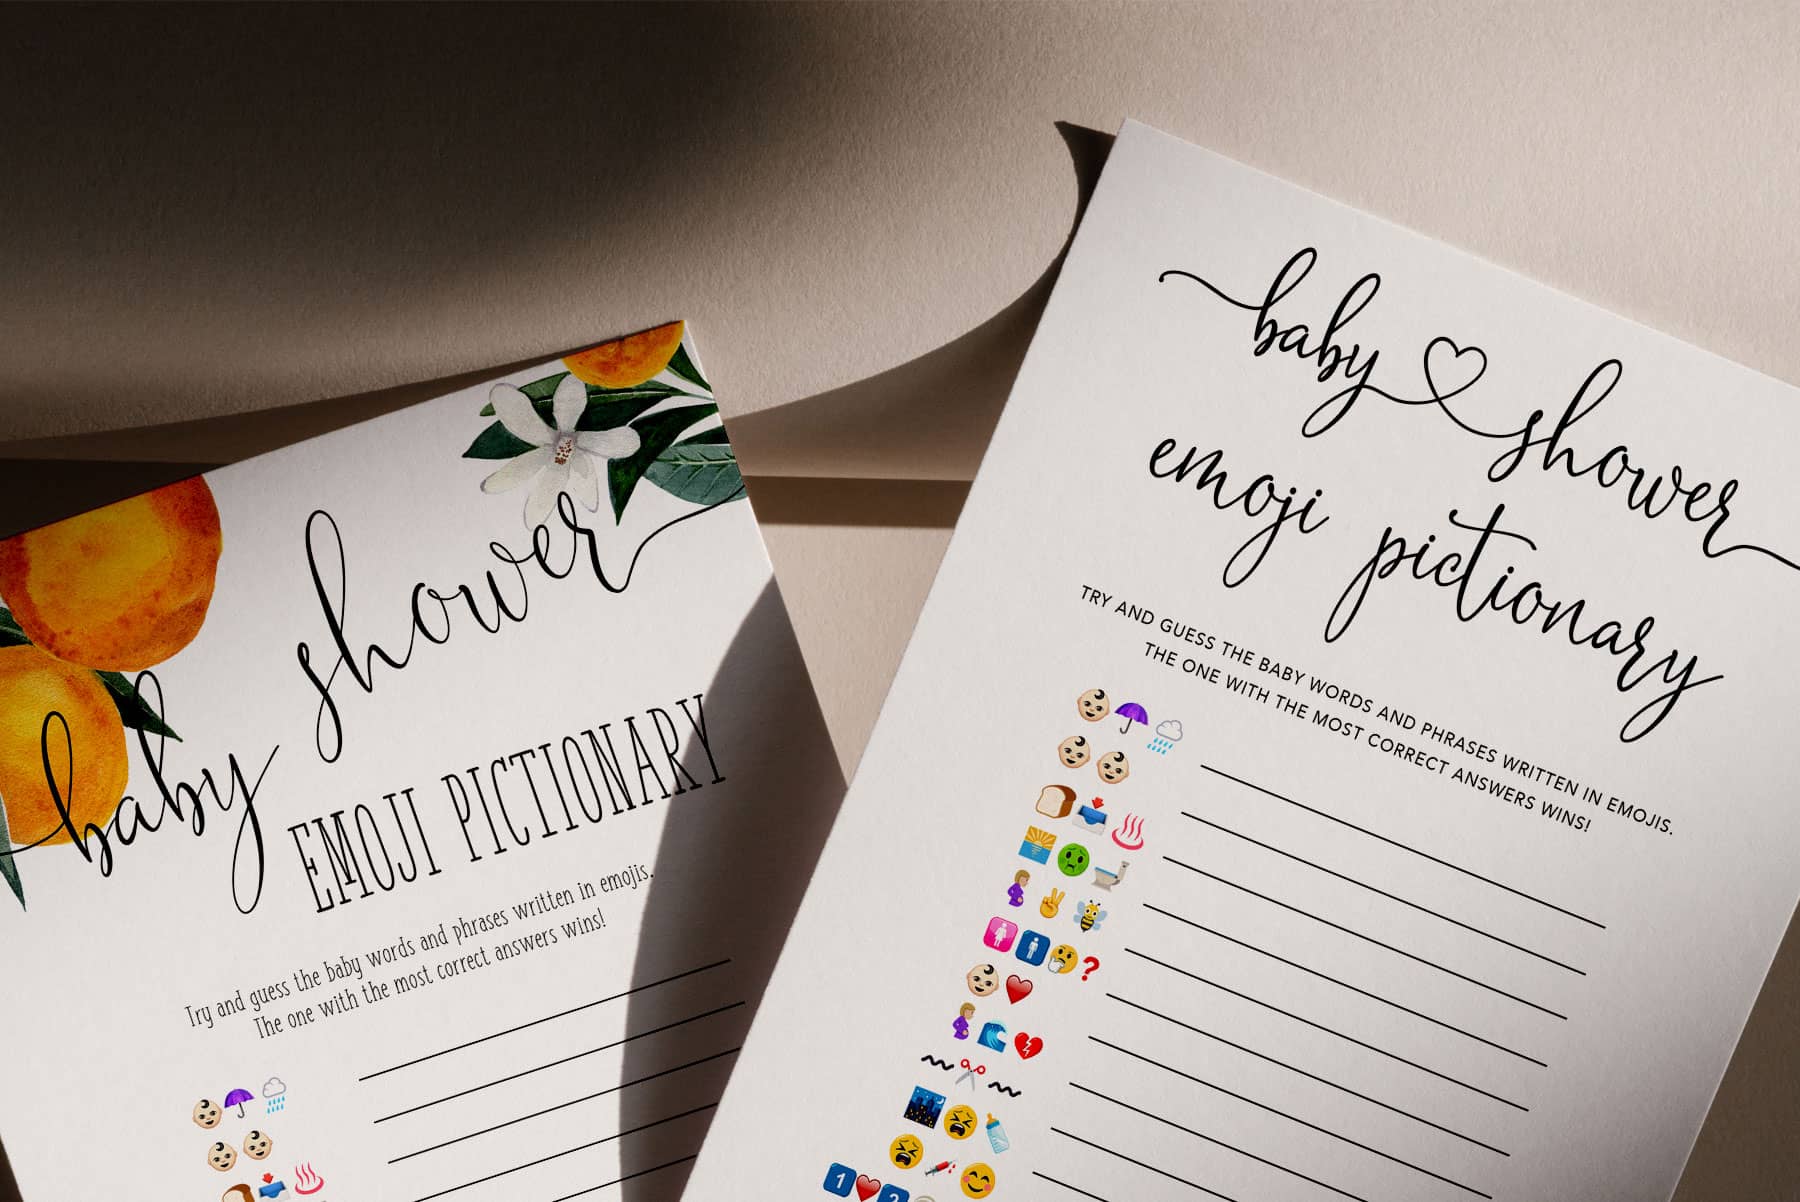 baby shower
EMOJI PICTIONARY
Try and guess the baby words and phrases written in emojis.
The one with the most correct answers wins!
baby shower
emoji pictionary
TRY AND GUESS THE BABY WORDS AND PHRASES WRITTEN IN EMOJIS.
THE ONE WITH THE MOST CORRECT ANSWERS WINS!
?
1 2